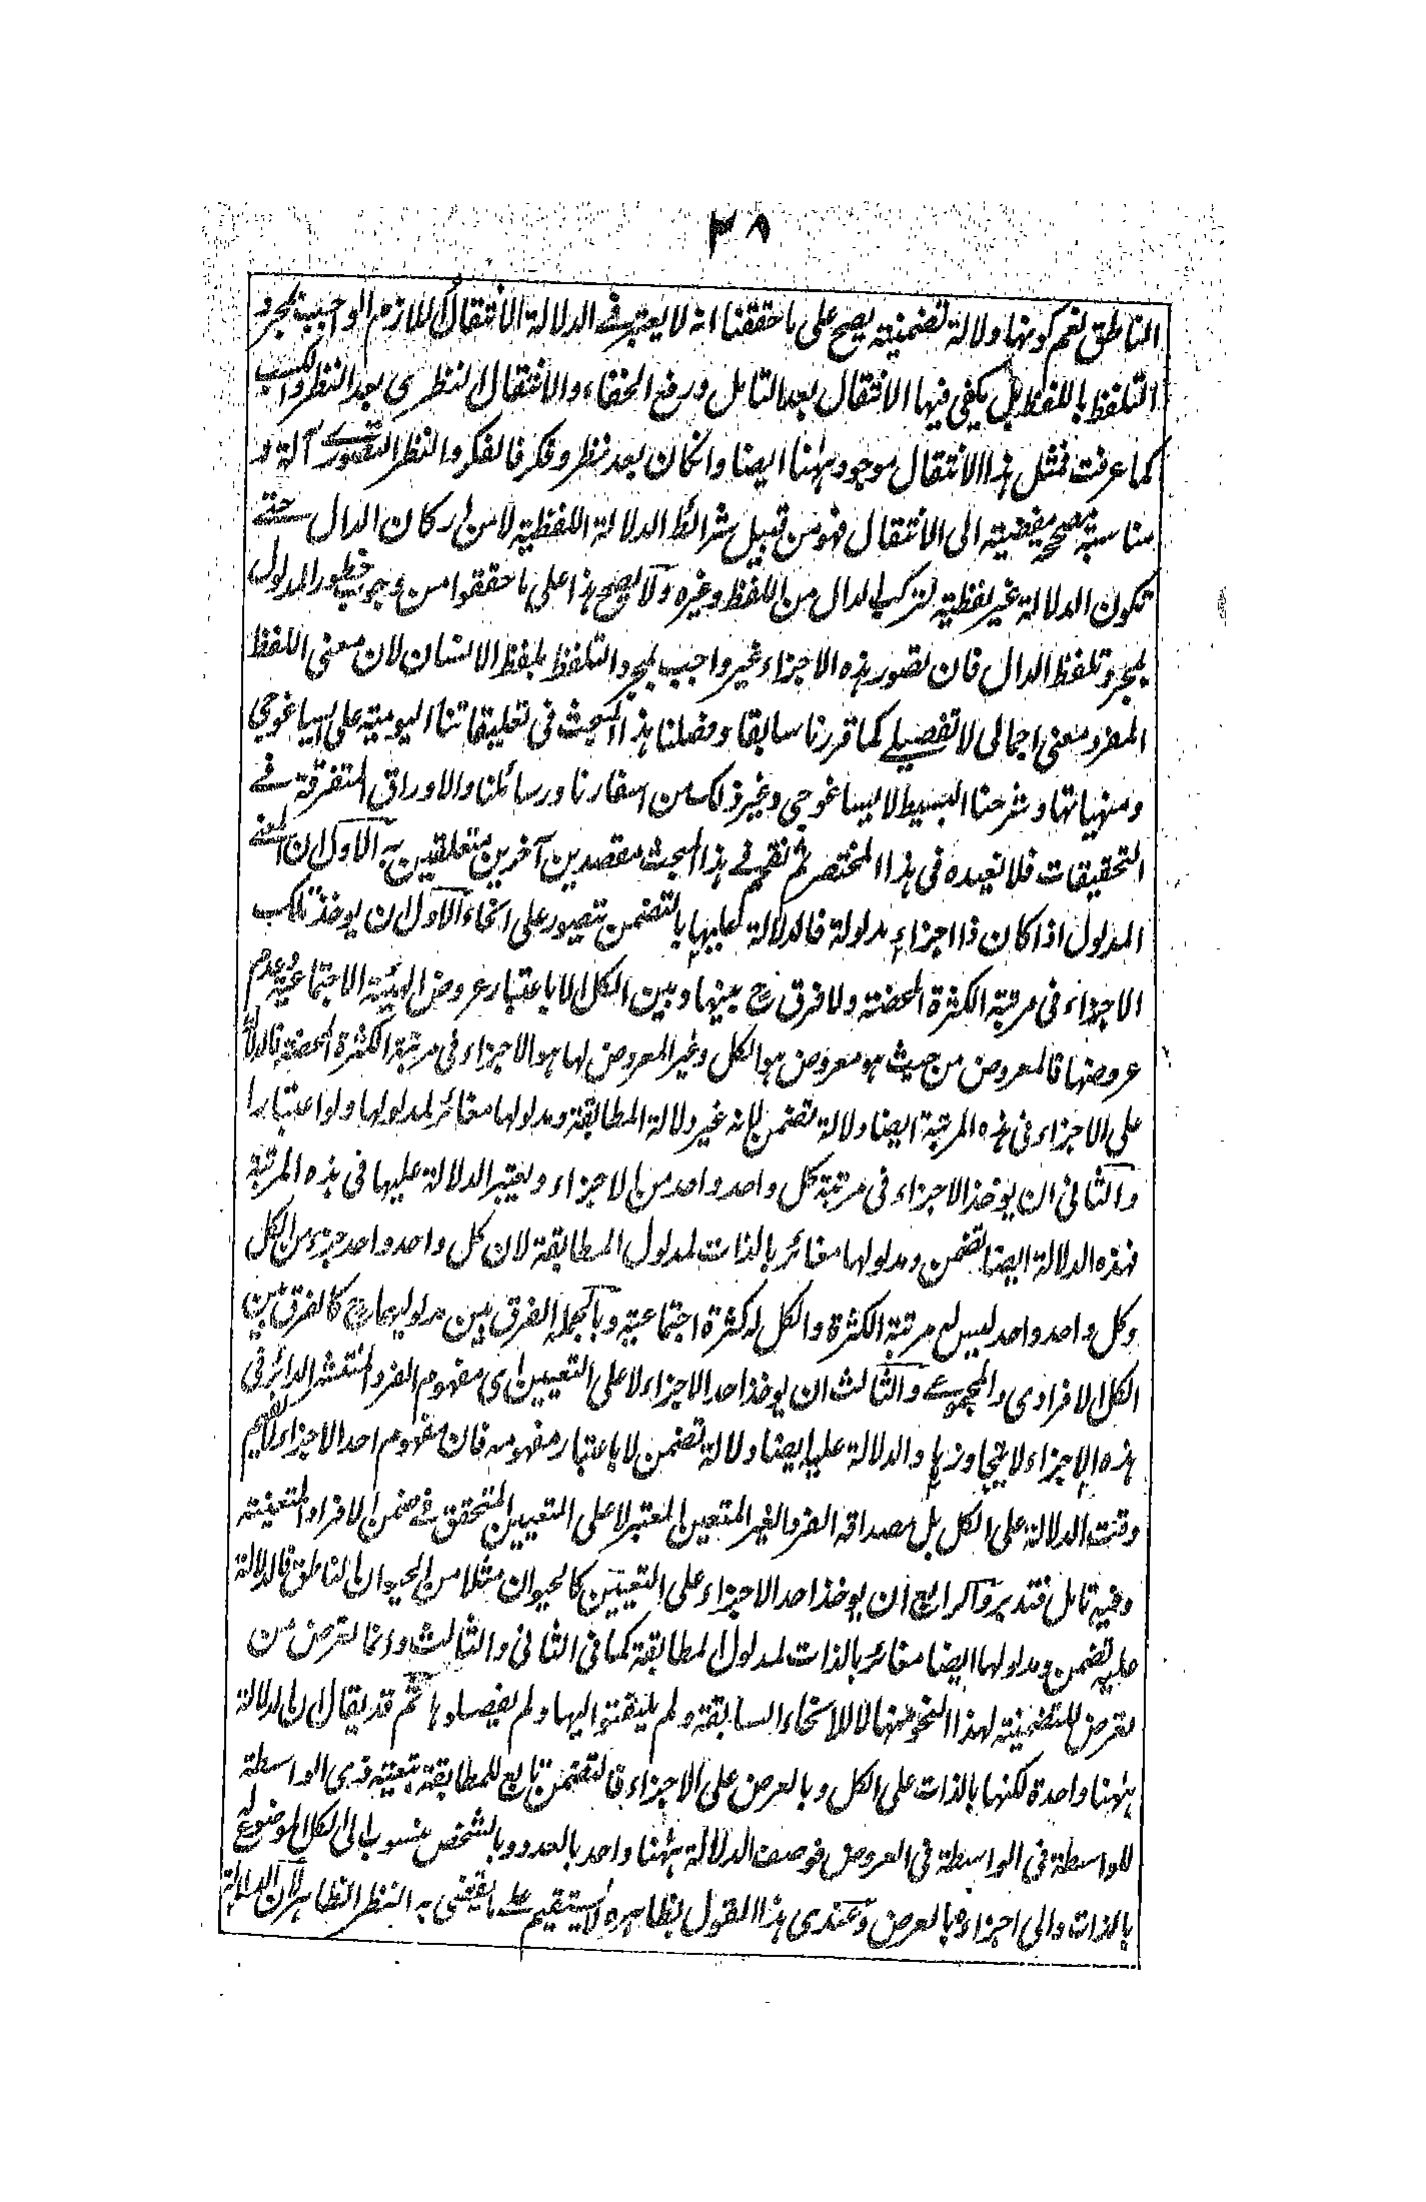 ٣٨
الناطق نعم كونها دلالة تضمنية يصح على ما حققنا انه لا يعتبر في الدلالة الانتقال اللازم الواجب بمجرد
التلفظ باللفظ بل يكفي فيها الانتقال بعد التامل ورفع الخفاء والانتقال النظري بعد النظر والكسب
كما عرفت فمثل هذا الانتقال موجود ههنا ايضا وانكان بعد نظر وفكر فالفكر والنظر التصوري آلة و
مناسبة مصححة مفضية الى الانتقال فهو من قبيل شرائط الدلالة اللفظية لا من اركان الدال حتى
تكون الدلالة غير لفظية لتركب الدال من اللفظ وغيره ولا يصح هذا على ما حققوا من وجوب خطور المدلول
بمجرد تلفظ الدال فان تصور هذه الاجزاء غير واجب بمجرد التلفظ بلفظ الانسان لان معنى اللفظ
المفرد معنى اجمالي لا تفصيلي كما قررنا سابقا وفصلنا هذا المبحث في تعليقاتنا اليومية على ايساغوجي
ومنهياتها وشرحنا البسيط لايساغوجي وغير ذلك من اسفارنا ورسائلنا والاوراق المتفرقة في
التحقيقات فلا نعيده في هذا المختصر ثم نقحم في هذا المبحث مقصدين آخرين متعلقين به الاول ان المعنى
المدلول اذا كان ذا اجزاء مدلولة فالدلالة عليها بالتضمن يتصور على انحاء الاول ان يوخذ تلك
الاجزاء في مرتبة الكثرة المحضة ولا فرق ح بينها وبين الكل الا باعتبار عروض الهيئة الاجتماعية وعدم
عروضها فالمعروض من حيث هو معروض هو الكل وغير المعروض لها هو الاجزاء في مرتبة الكثرة المحضة فالدلالة
على الاجزاء في هذه المرتبة ايضا دلالة تضمن لانه غير دلالة المطابقة ومدلولها مغائر لمدلولها ولو اعتبارا
والثاني ان يوخذ الاجزاء في مرتبة كل واحد واحد من الاجزاء ويعتبر الدلالة عليها في هذه المرتبة
فهذه الدلالة ايضا تضمن ومدلولها مغائر بالذات لمدلول المطابقة لان كل واحد واحد جزء من الكل
وكل واحد واحد ليس له مرتبة الكثرة والكل له كثرة اجتماعية وبالجملة الفرق بين مدلوليهما ح كالفرق بين
الكل الافرادي والمجموعي والثالث ان يوخذ احد الاجزاء لا على التعيين اي مفهوم الفرد المنتشر الدائر في
هذه الاجزاء لا يتجاوزها والدلالة عليه ايضا دلالة تضمن لا باعتبار مفهومه فان مفهوم احد الاجزاء لا يفهم
وقت الدلالة على الكل بل مصداقه الفرد الغير المتعين المعتبر لا على التعيين المتحقق في ضمن الافراد المتعينة
وفيه تامل فتدبر والرابع ان يوخذ احد الاجزاء على التعيين كالحيوان مثلا من الحيوان الناطق فالدلالة
عليه تضمن ومدلولها ايضا مغائر بالذات لمدلول المطابقة كما في الثاني والثالث وانما تعرض من
تعرض للتضمنية لهذا النحو منها لا للانحاء السابقة ولم يلتفتوا اليها ولم يفصلوها ثم قد يقال ان الدلالة
ههنا واحدة لكنها بالذات على الكل وبالعرض على الاجزاء فالتضمن تابع للمطابقة بتبعية ذي الواسطة
للواسطة في الواسطة في العروض فوصف الدلالة ههنا واحد بالعدد وبالشخص منسوب الى الكل الموضوع له
بالذات والى اجزاءه بالعرض وعندي هذا القول بظاهره لا يستقيم على ما يقتضى به النظر الظاهر لان الدلالة